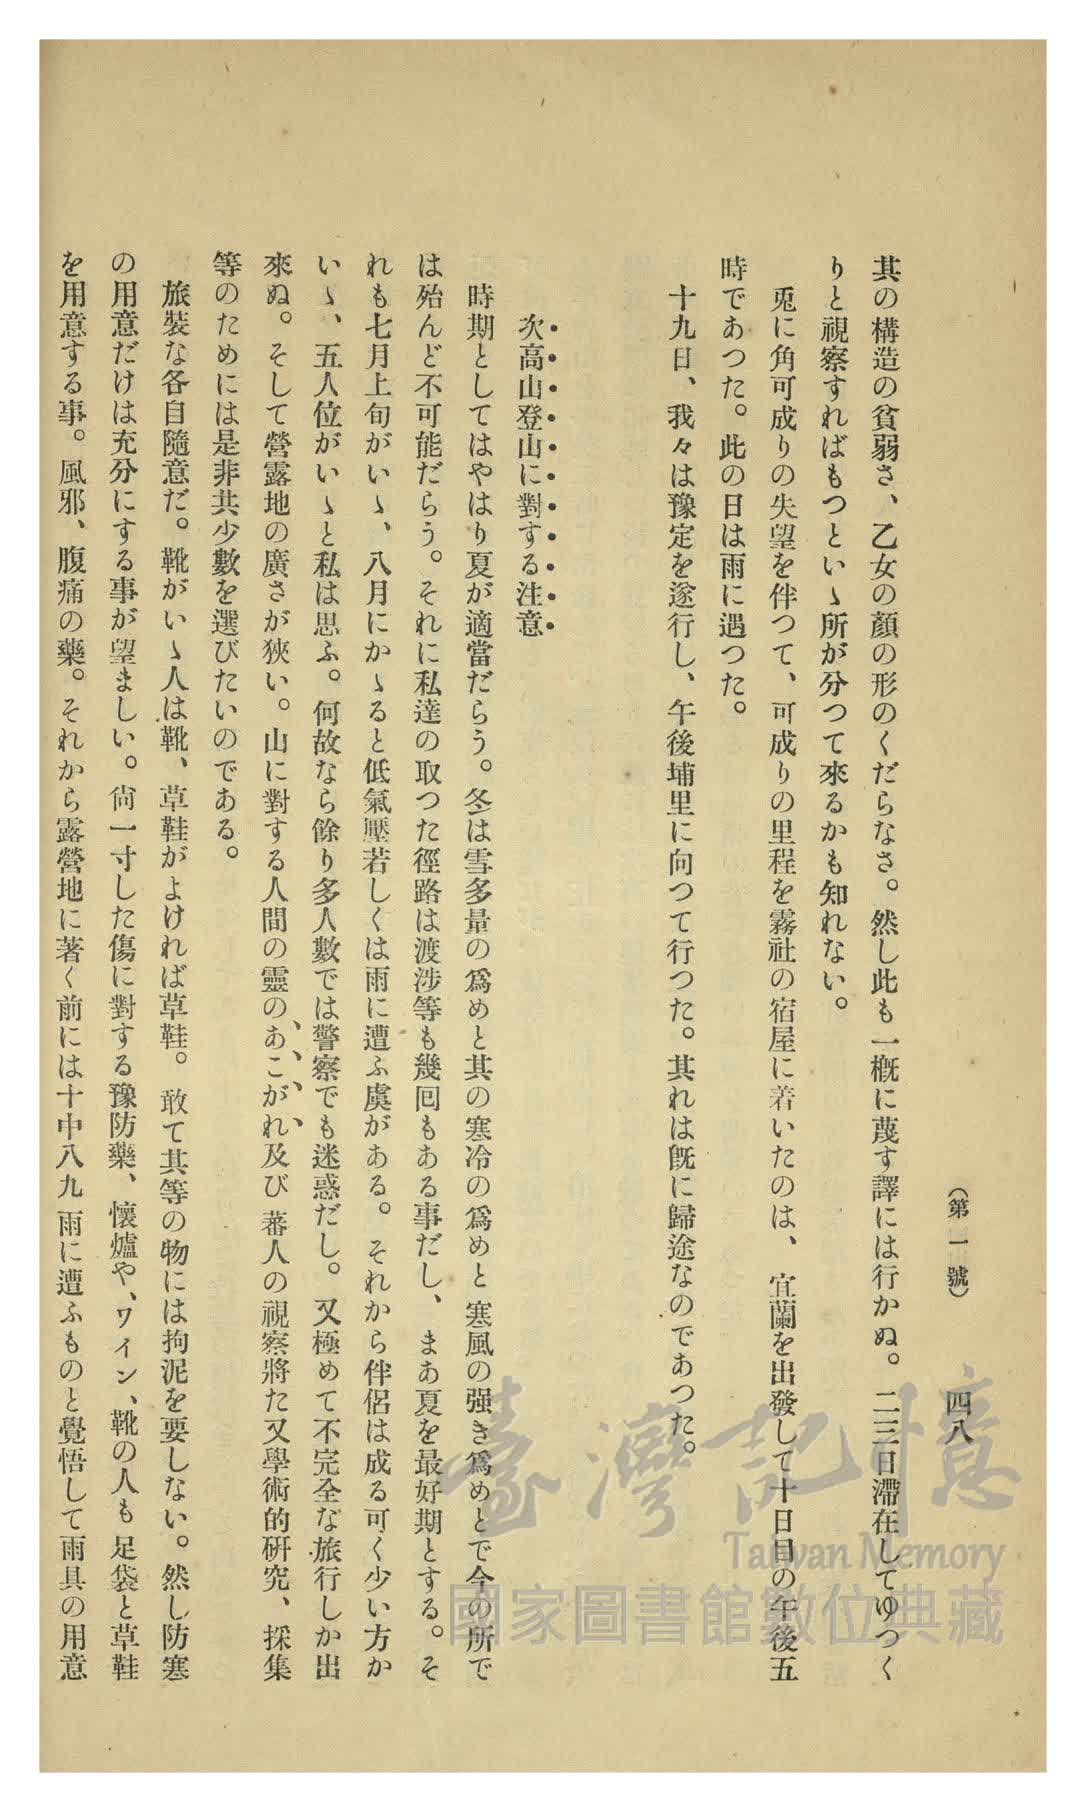 （第一號）　四八
其の構造の貧弱さ、乙女の顏の形のくだらなさ。然し此も一概に蔑す譯には行かぬ。二三日滯在してゆつく
りと視察すればもつといゝ所が分つて來るかも知れない。
兎に角可成りの失望を伴つて、可成りの里程を霧社の宿屋に着いたのは、宜蘭を出發して十日目の午後五
時であつた。此の日は雨に遇つた。
十九日、我々は豫定を遂行し、午後埔里に向つて行つた。其れは旣に歸途なのであつた。
次高山登山に對する注意
時期としてはやはり夏が適當だらう。冬は雪多量の爲めと其の寒冷の爲めと寒風の强き爲めとで今の所で
は殆んど不可能だらう。それに私達の取つた徑路は渡涉等も幾回もある事だし、まあ夏を最好期とする。そ
れも七月上旬がいゝ、八月にかゝると低氣壓若しくは雨に遭ふ虞がある。それから伴侶は成る可く少い方か
いゝ、五人位がいゝと私は思ふ。何故なら餘り多人數では警察でも迷惑だし。又極めて不完全な旅行しか出
來ぬ。そして營露地の廣さが狹い。山に對する人間の靈のあこがれ及び蕃人の視察將た又學術的硏究、採集
等のためには是非共少數を選びたいのである。
旅裝な各自隨意だ。靴がいゝ人は靴、草鞋がよければ草鞋。敢て其等の物には拘泥を要しない。然し防寒
の用意だけは充分にする事が望ましい。尙一寸した傷に對する豫防藥、懷爐や、ワイン、靴の人も足袋と草鞋
を用意する事。風邪、腹痛の藥。それから露營地に著く前には十中八九雨に遭ふものと覺悟して雨具の用意
臺灣記憶
Taiwan Memory
國家圖書館數位典藏